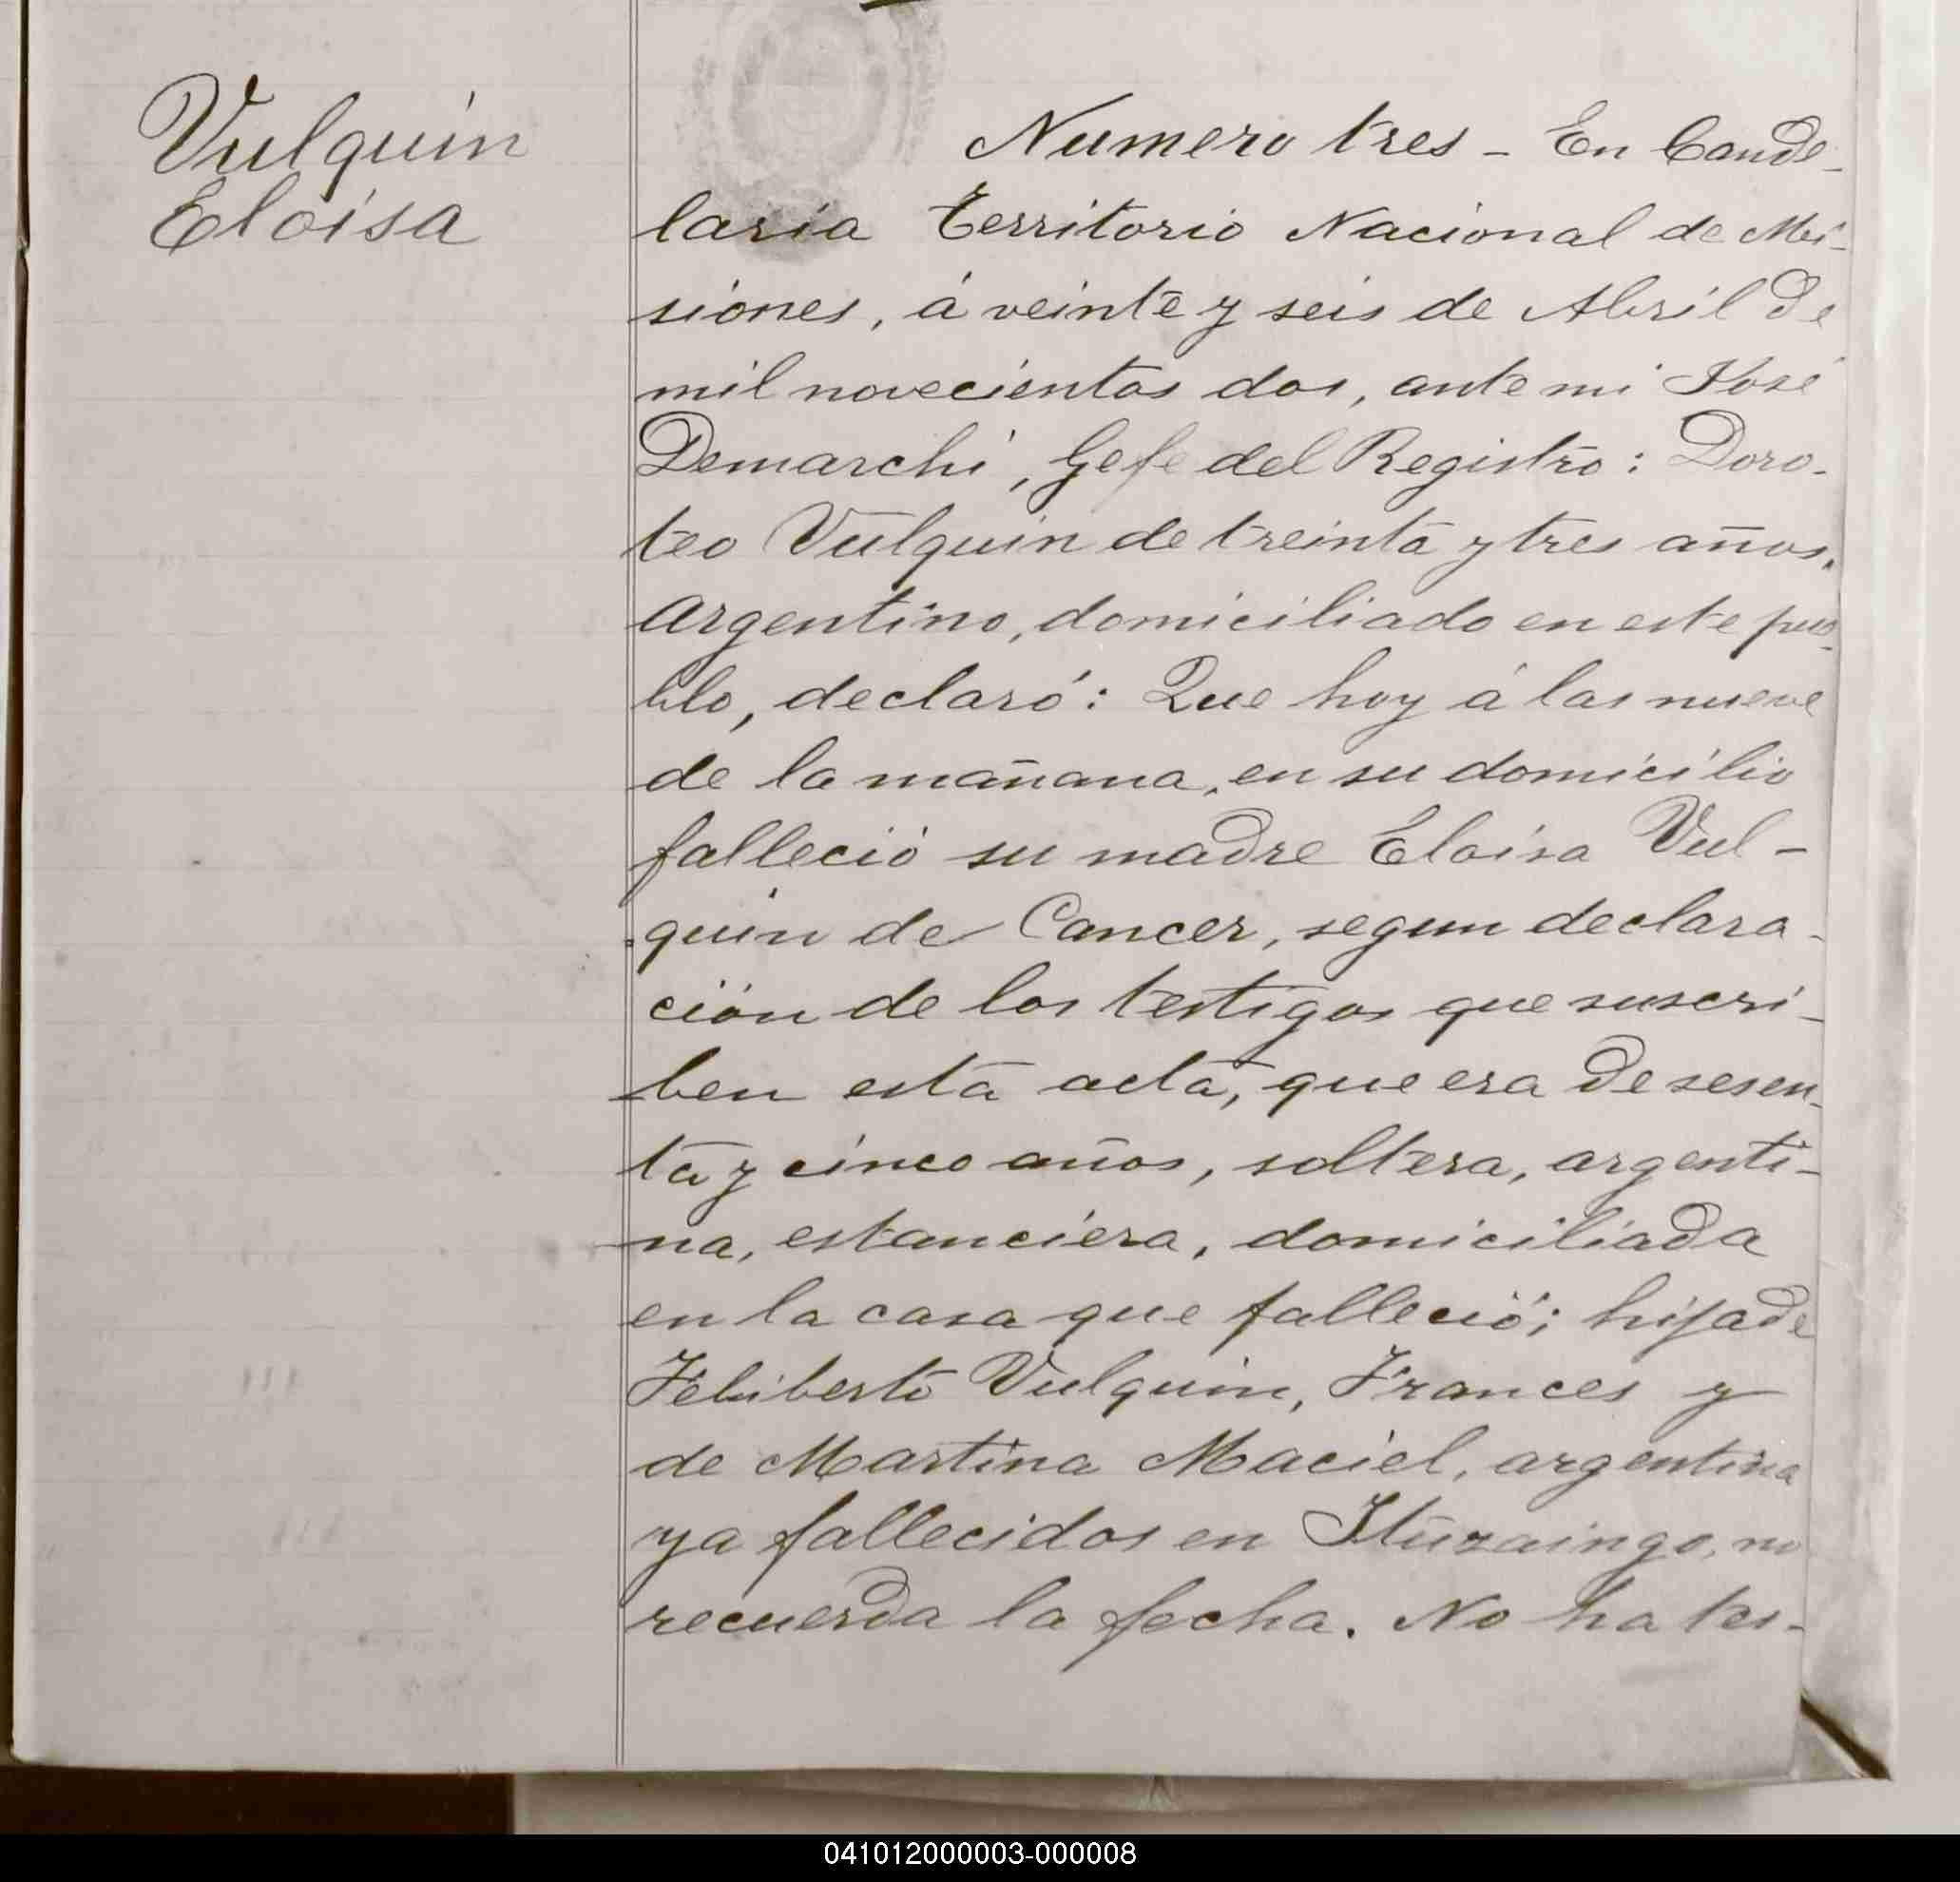 Vulquin
Eloisa
Numero tres - En Cande-
laria Territorio Nacional de Mi-
siones, á veinte y seis de Abril de
mil novecientos dos, ante mi José
Demarchi, Gefe del Registro: Doro-
teo Vulquin de treinta y tres años,
Argentino, domiciliado en este pue-
blo, declaró: Que hoy á las nueve
de la mañana, en su domicilio
falleció su madre Eloisa Vul-
quin de Cancer, segun declara-
ción de los testigos que suscri-
ben esta acta, que era de sesen-
ta y cinco años, soltera, argenti-
na, estanciera, domiciliada
en la casa que falleció; hija de
Feliberto Vulquin, Frances y
de Martina Maciel, argentina
ya fallecidos en Ituzaingo, no
recuerda la fecha. No ha tes-
041012000003-000008